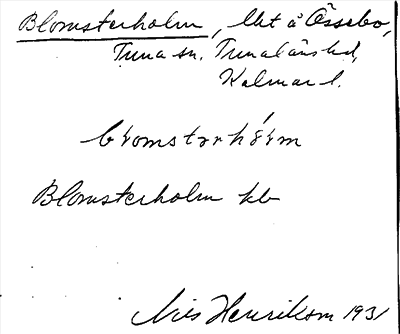 Blomsterholm, lht å Össebo,
Tuna sn. Tunaläns hd,
Kalmar l.
blomstərhólm
Blomsterholm kb
Nils Henriksson 1931